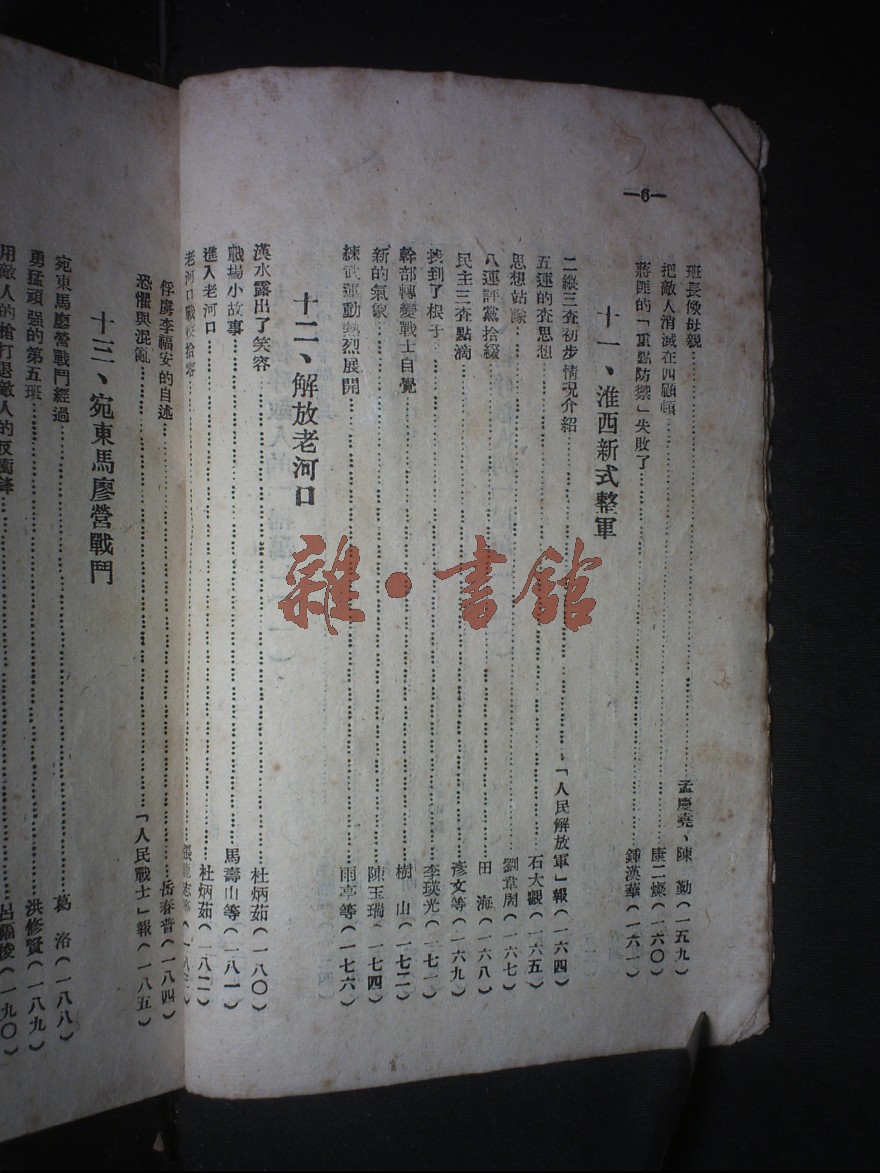 —6—
班長候母親……孟慶堯、陳 勤(一五九)
把敵人消滅在四顧頓……康二燦(一六〇)
蔣匪的「重點防禦」失敗了……鍾漢華(一六一)
十一、淮西新式整軍
二縱三查初步情況介紹……「人民解放軍」報(一六四)
五連的查思想……石大觀(一六五)
思想站隊……劉韋周(一六七)
八連評黨拾綴……田 海(一六八)
民主三查點滴……彥文等(一六九)
找到了根子……李瑛光(一七一)
幹部轉變戰士自覺……樹 山(一七二)
新的氣象……陳玉瑞(一七四)
練武運動熱烈展開……雨亭等(一七六)
十二、解放老河口
漢水露出了笑容……杜炳茹(一八〇)
戰場小故事……馬壽山等(一八一)
進入老河口……杜炳茹(一八二)
老河口戰役拾零……
俘虜李福安的自述……岳春普(一八四)
恐懼與混亂……「人民戰士」報(一八五)
十三、宛東馬廖營戰鬥
宛東馬廖營戰鬥經過……葛 洛(一八八)
勇猛頑强的第五班……洪修賢(一八九)
用敵人的槍打退敵人的反衝鋒……(一九〇)
雜·書館